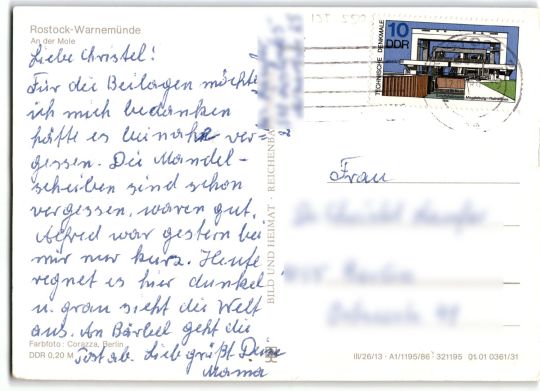 Rostock-Warnemünde
An der Mole
Liebe Christel!
Für die Beilagen möchte
ich mich bedanken
hätte es beinahe ver-
gessen. Die Mandel-
scheiben sind schon
vergessen, waren gut.
Alfred war gestern bei
mir nur kurz. Heute
regnet es hier dunkel
u. grau sieht die Welt
aus. An Bärbel geht die
Post ab. Lieb grüßt Deine
Mama
Farbfoto: Corazza, Berlin
DDR 0,20 M
BILD UND HEIMAT · REICHENBA
TECHNISCHE DENKMALE
10
DDR
Magdeburg-Rothensee
Frau
Berlin
III/26/13 · A1/1195/86 321195 01 01 0361/31